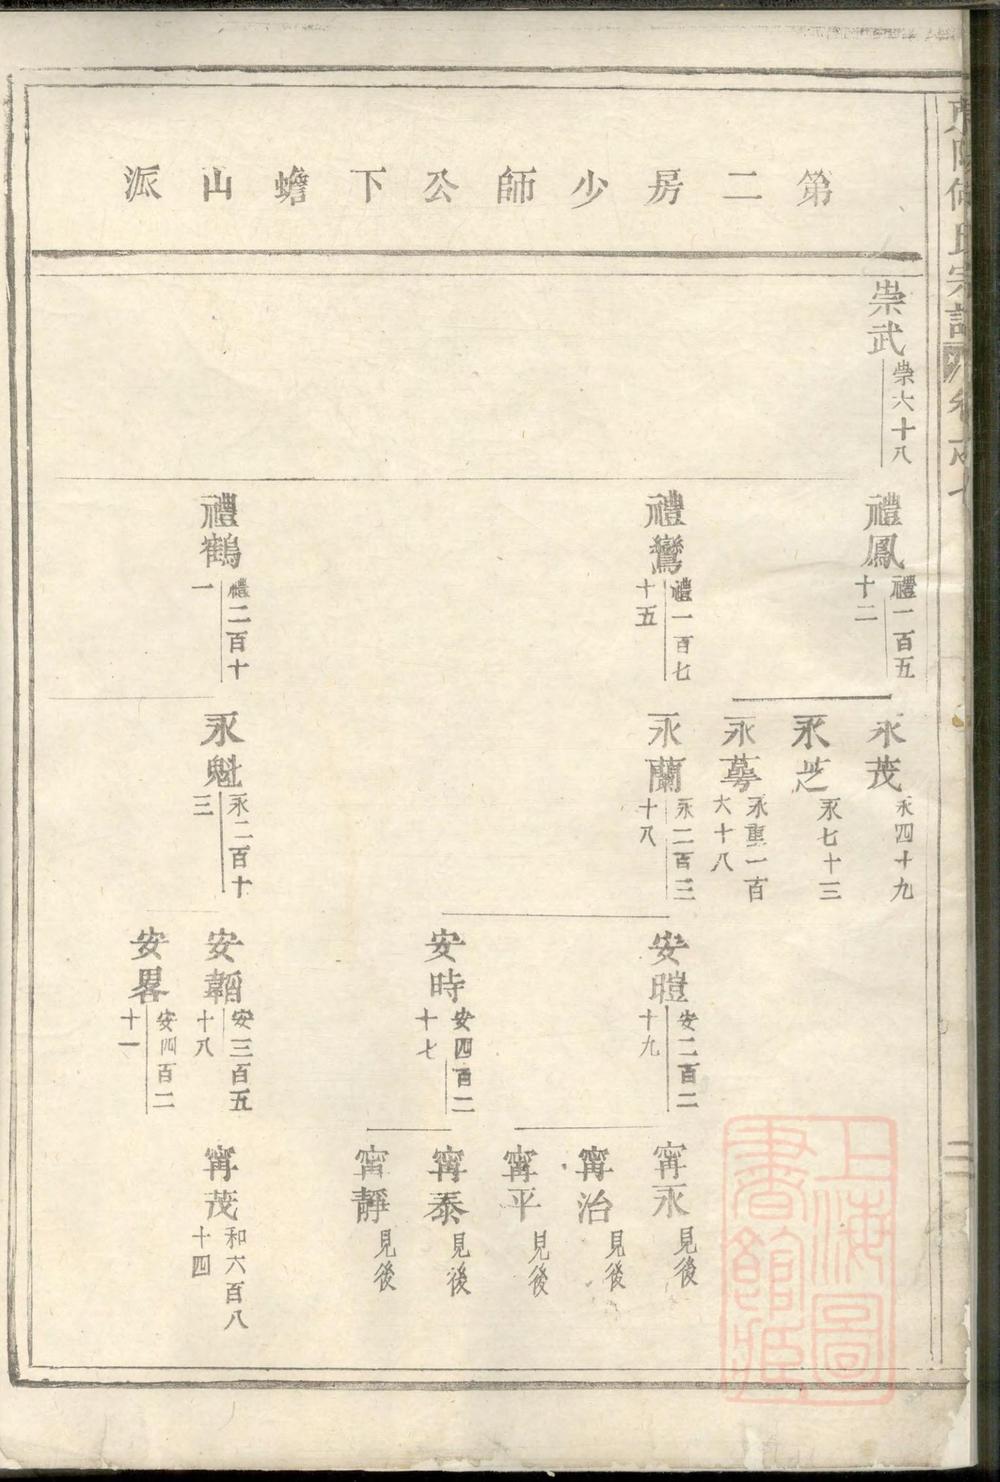 第二房少師公下蟾山派
崇武 崇六十八
禮鳳 禮一百五十二
禮鸞 禮一百七十五
禮鶴 禮二百十一
永茂 永四十九
永芝 永七十三
永蕚 永重一百六十八
永蘭 永二百三十八
永魁 永二百十三
安暟 安二百二十九
安時 安四百二十七
安韜 安三百五十八
安畧 安四百二十一
寗永 見後
寗治 見後
寗平 見後
寗泰 見後
寗靜 見後
寗茂 和六百八十四
二
上海圖書館藏